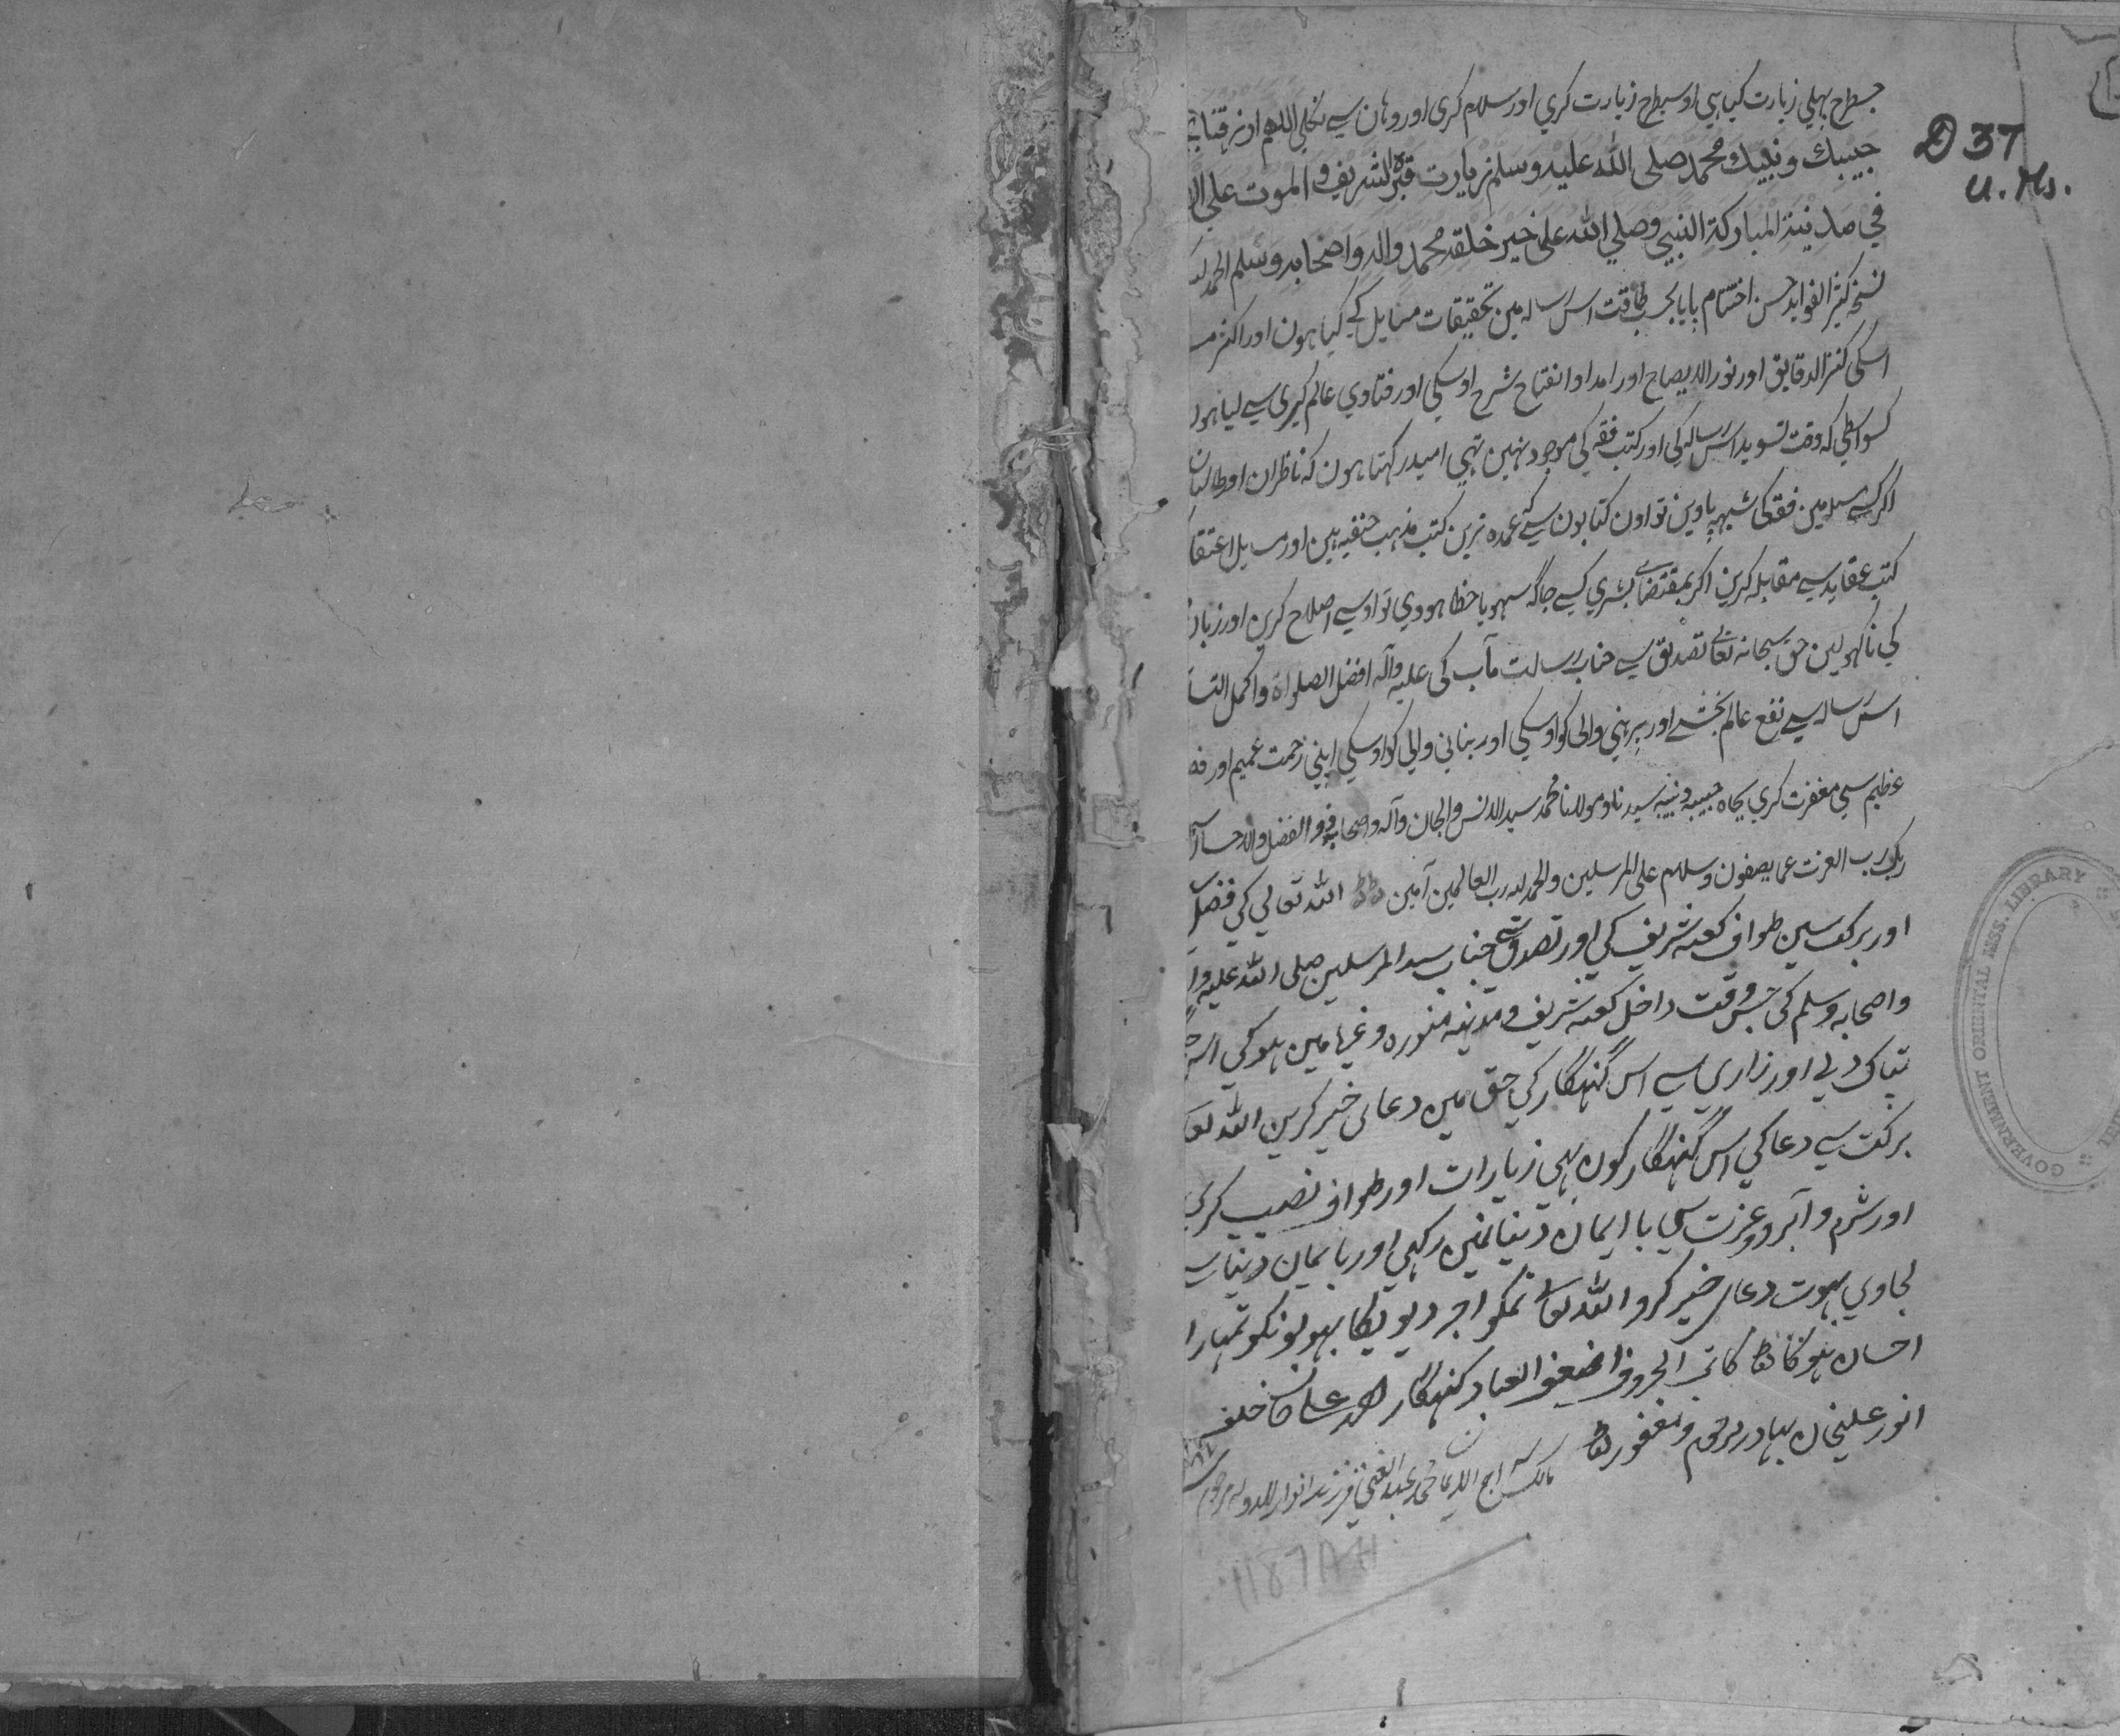 جسطرح پہلی زیارت کیا ہی اوسیطرح زیارت کری اور سلام کری اور وہان سی نکلی اللهم ارزقنا
حبیبك ونبیك محمد صلی الله علیه وسلم زیارت قبره الشریف و الموت علی
في مدینة المبارکة النبي وصلی الله علی خیر خلقه محمد واله واصحابه وسلم الحمد
نسخہ کثیر الفواید حسن اختتام پایا بحسب طاقت اس رسالہ مین تحقیقات مسایل کے کیا ہون اور اکثر
اسکی کنز الدقایق اور نور الایضاح اور امداد الفتاح شرح اوسکی اور فتاوی عالم کیری سی لیا ہون
کسواسطی کہ وقت تسوید اس رسالہ کی اور کتب فقہ کی موجود نہین تہی امید رکہتا ہون کہ ناظران اور طالبان
اکر کسی مسلہ مین فقہ کی شبہہ پاوین تو اون کتابون سی کہ عمدہ ترین کتب مذہب حنفیہ ہین اور مسایل
کتب عقاید سی مقابلہ کرین اکر بمقتضای بشری کسی جاگہ سہو یا خطا ہووی تو اوسی اصلاح کرین اور زبان
کی ناکہولین حق سبحانہ تعالی تصدق سی جناب رسالت مآب کی علیہ وآلہ افضل الصلواة واکمل
اس رسالہ سی نفع عالم بخشے اور پڑہنی والی کو اوسکی اور بنانی والی کو اوسکی اپنی رحمت عمیم اور
عظیم سی مغفرت کری بجاہ حبیبہ و نبیہ سیدنا و مولانا محمد سید الانس والجان وآلہ واصحابہ ذو الفضل والاحسان
ربک رب العزت عما یصفون وسلام علی المرسلین والحمد لله رب العالمین آمین الله تعالی کی فضل
اور برکت سین طواف کعبہ شریف کی اور تصدق سی جناب سید المرسلین صلی الله علیہ و
واصحابہ وسلم کی جس وقت داخل کعبہ شریف و مدینہ منورہ وغیرہا مین ہو کی
تپاک دلی اور زاری سی اس گنہگار کی حق مین دعای خیر کرین الله
برکت سی دعا کی اس گنہگار کون بہی زیارات اور طواف نصیب کری
اور شرم و آبرو و عزت سی با ایمان دنیا مین رکہی اور با ایمان دنیا سی
لجاوی بہوت دعای خیر کرو الله تعالی تمکو اجر دیویگا بہولو نکو تمہارا
احسان ہوگا کاتب الحروف اضعف العباد گنہگار علی خان خلف
انور علیخان بہادر مرحوم و مغفور
مالک سراج الدین محمد عبد الغنی فرزند انوار الدولہ مرحوم
1187 AH
D 37
U. Ms.
GOVERNMENT ORIENTAL MSS. LIBRARY